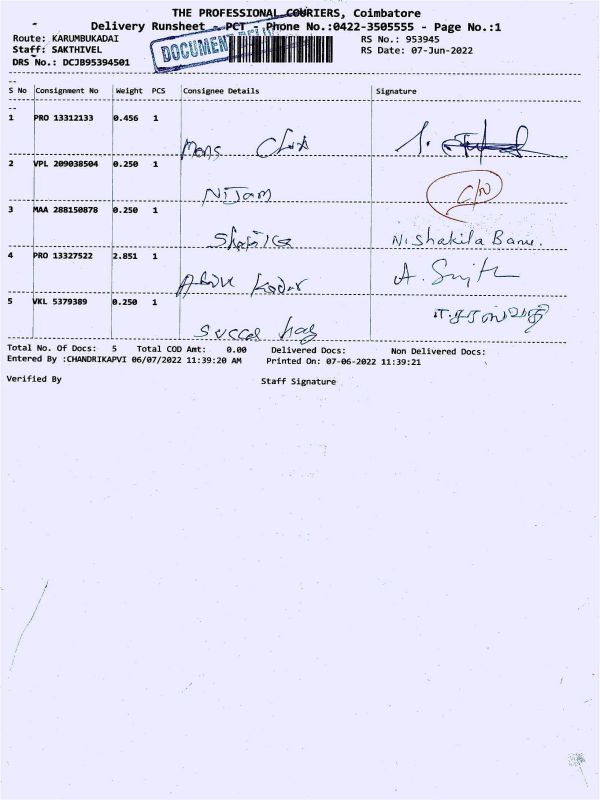 THE PROFESSIONAL COURIERS, Coimbatore
Delivery Runsheet - PCT - Phone No.:0422-3505555 - Page No.:1
Route: KARUMBUKADAI RS No.: 953945
Staff: SAKTHIVEL RS Date: 07-Jun-2022
DRS No.: DCJB95394501
DOCUMENT
S No Consignment No Weight PCS Consignee Details Signature
1 PRO 13312133 0.456 1
2 VPL 209038504 0.250 1
Nijam
3 MAA 288150878 0.250 1
N. Shakila Banu.
4 PRO 13327522 2.851 1
5 VKL 5379389 0.250 1
Total No. Of Docs: 5 Total COD Amt: 0.00 Delivered Docs: Non Delivered Docs:
Entered By :CHANDRIKAPVI 06/07/2022 11:39:20 AM Printed On: 07-06-2022 11:39:21
Verified By Staff Signature